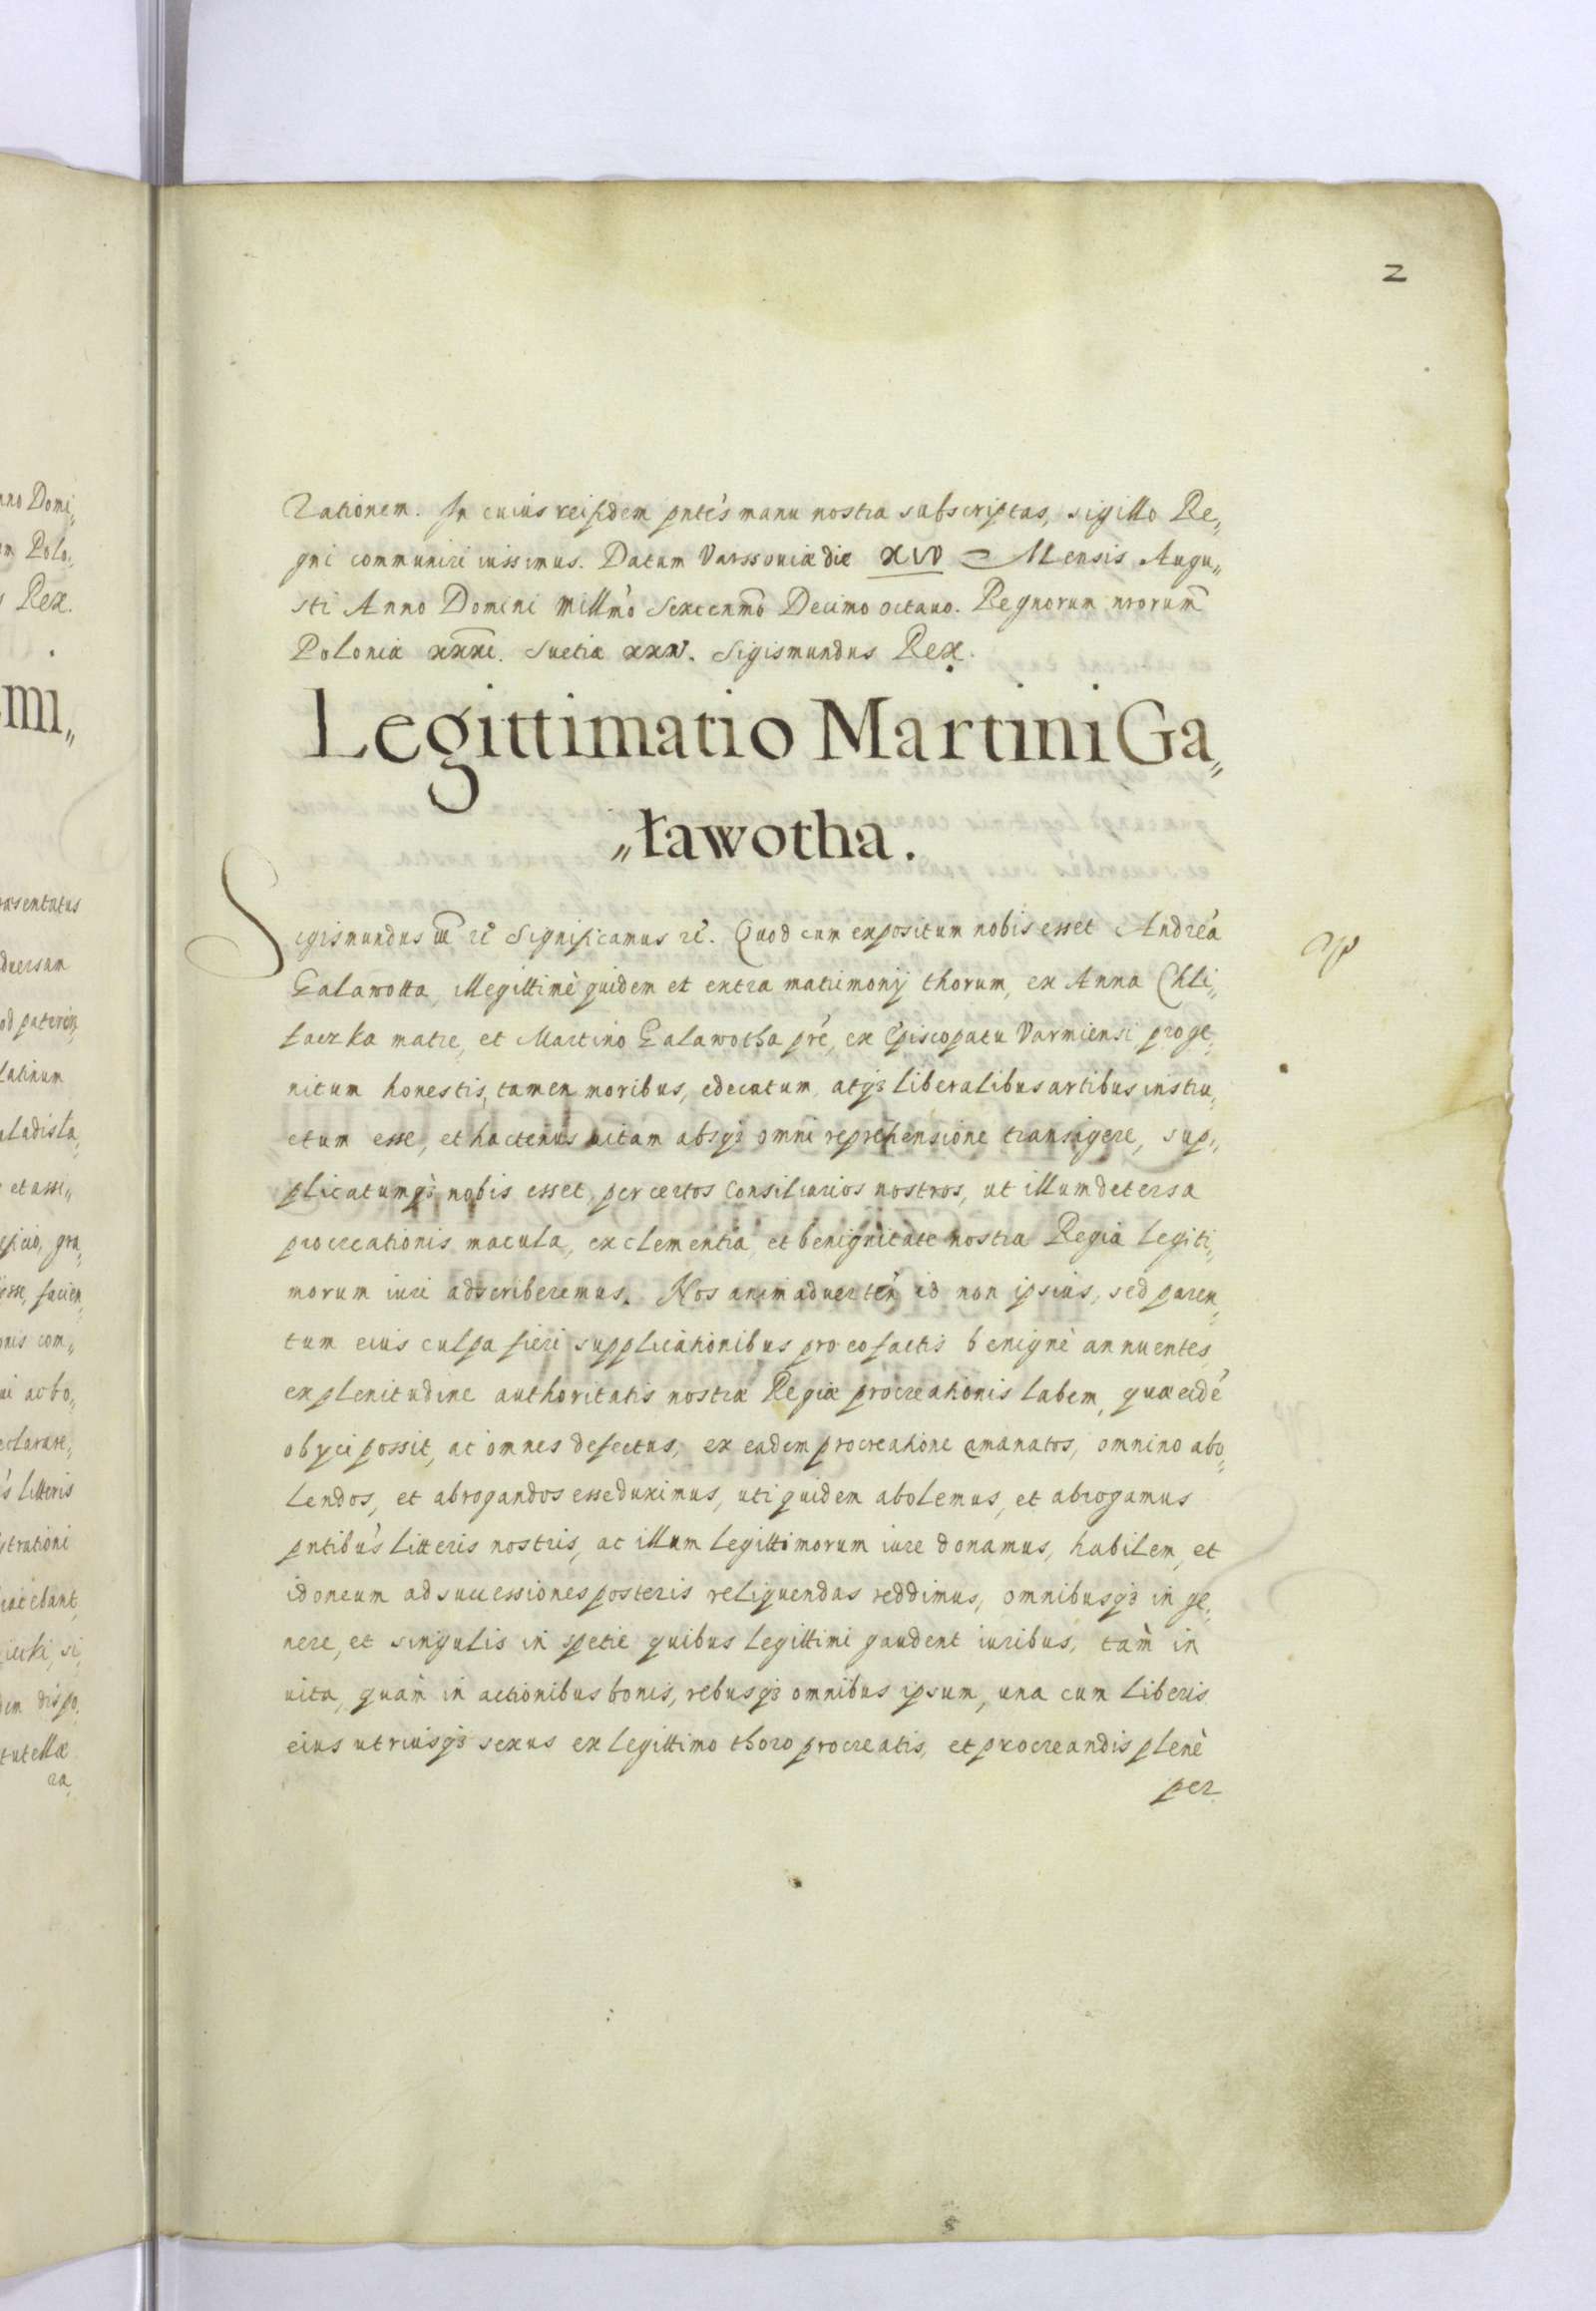 2
rationem. In cuius rei fidem pntes manu nostra subscriptas, sigillo Re„
gni communiri iussimus. Datum Varssouiæ die XVI Mensis Augu„
sti Anno Domini Millmo Sexcenmo Decimo octauo. Regnorum nrorum
Poloniæ xxxi. Suetiæ xxv. Sigismundus Rex.
Legittimatio Martini Ga„
„ławotha.
Sigismundus III rê Significamus rê. Quod cum expositum nobis esset Andreã
Galawotta, illegittimè quidem et extra matrimonij thorum, ex Anna Chli„
łaczka matre, et Martino Galawotha prê, ex Episcopatu Varmiensi proge„
nitum honestis, tamen moribus, educatum, atq3 liberalibus artibus instru„
ctum esse, et hactenus uitam absq3 omni reprehensione transigere, sup„
plicatumq3 nobis esset, per certos Consiliarios nostros, ut illum detersa
procreationis macula, ex clementia et benignitate nostra Regia legiti„
morum iuri adscriberemus. Nos animaduerten id non ipsius, sed paren„
tum eius culpa fieri supplicationibus pro eo factis benignè annuentes
ex plenitudine authoritatis nostræ Regiæ procreationis labem, quæ eidê
obijci possit, ac omnes defectus, ex eadem procreatione emanatos, omnino abo„
lendos, et abrogandos esse duximus, uti quidem abolemus, et abrogamus
pntibus litteris nostris, ac illum legittimorum iure donamus, habilem, et
idoneum ad successiones posteris reliquendas reddimus, omnibusq3 in ge„
nere, et singulis in spetie quibus legittimi gaudent iuribus, tàm in
uita, quàm in actionibus bonis, rebusq3 omnibus ipsum, una cum liberis
eius utriusq3 sexus ex legittimo thoro procreatis, et procreandis plenè
per